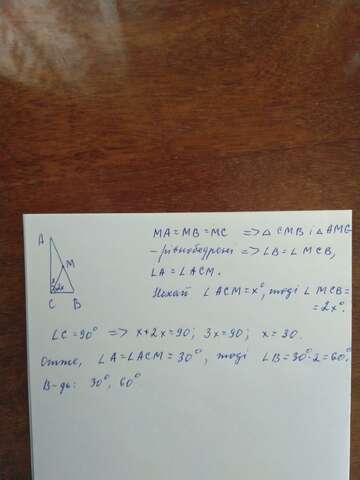 MA = MB = MC => △ CMB і △ AMC
- рівнобедрені => ∠B = ∠MCB,
∠A = ∠ACM.
Нехай ∠ACM = x°, тоді ∠MCB =
= 2x°.
A
M
x
2x
C B
∠C = 90° => x + 2x = 90; 3x = 90; x = 30.
Отже, ∠A = ∠ACM = 30°, тоді ∠B = 30°·2 = 60°.
В-дь: 30°, 60°